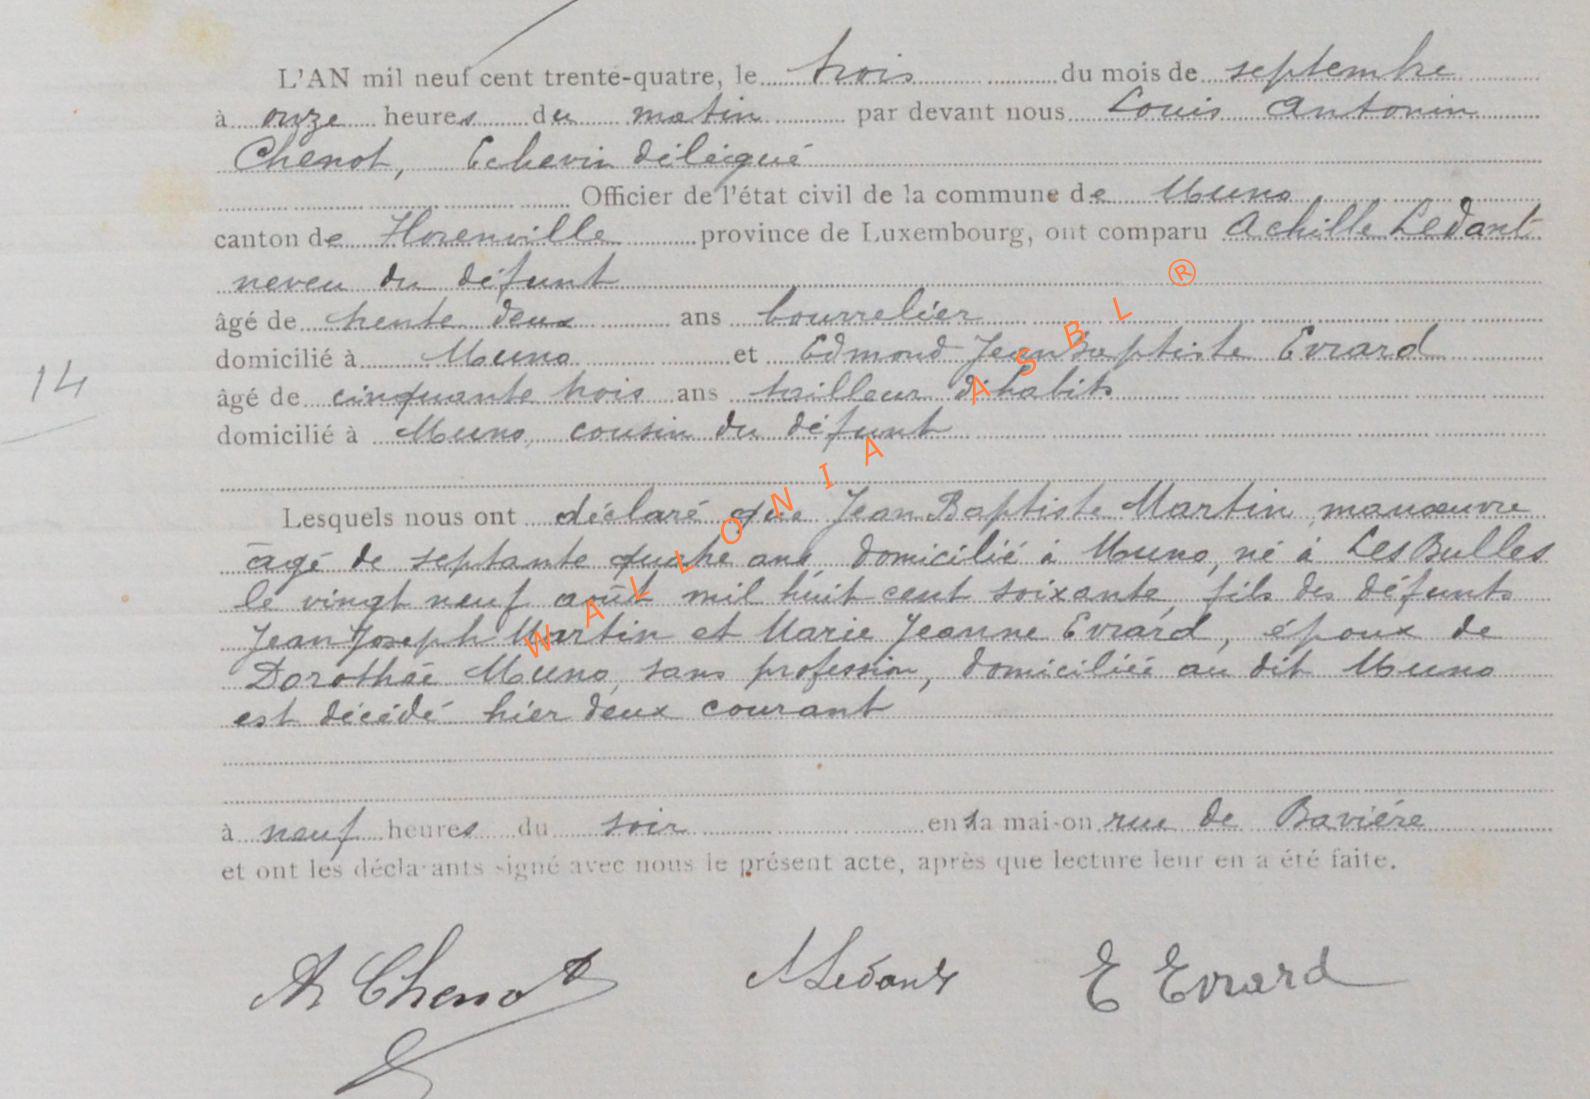 L'AN mil neuf cent trente-quatre, le trois du mois de septembre
à onze heures du matin par devant nous Louis Antonin
Chenot, Echevin délégué
Officier de l'état civil de la commune de Muno
canton de Florenville province de Luxembourg, ont comparu Achille Ledant
neveu du défunt
âgé de trente deux ans bourrelier
domicilié à Muno et Edmond Jean Baptiste Evrard
âgé de cinquante trois ans tailleur d'habits
14
domicilié à Muno, cousin du défunt
Lesquels nous ont déclaré que Jean Baptiste Martin, manœuvre
âgé de septante quatre ans, domicilié à Muno, né à Les Bulles
le vingt neuf août mil huit cent soixante, fils des défunts
Jean Joseph Martin et Marie Jeanne Evrard, époux de
Dorothée Muno, sans profession, domiciliée au dit Muno
est décédé hier deux courant
à neuf heures du soir en sa maison rue de Baviére
et ont les déclarants signé avec nous le présent acte, après que lecture leur en a été faite.
A Chenot ALedant E Evrard
WALLONIA ASBL ®